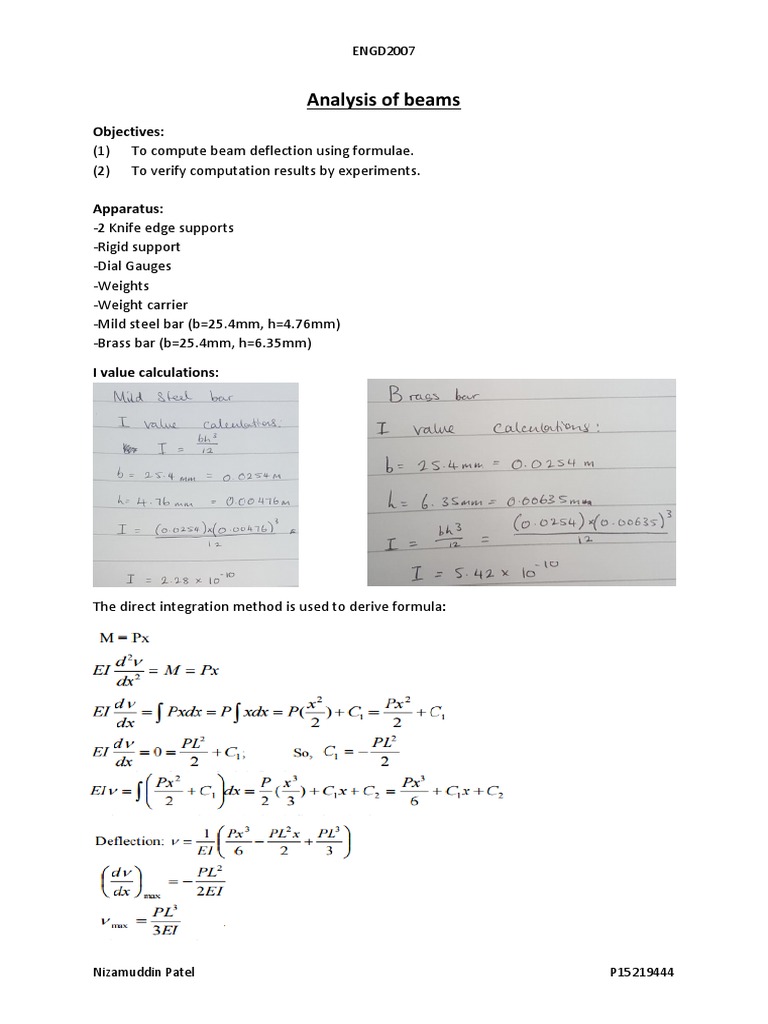 ENGD2007
Analysis of beams
Objectives:
(1) To compute beam deflection using formulae.
(2) To verify computation results by experiments.
Apparatus:
-2 Knife edge supports
-Rigid support
-Dial Gauges
-Weights
-Weight carrier
-Mild steel bar (b=25.4mm, h=4.76mm)
-Brass bar (b=25.4mm, h=6.35mm)
I value calculations:
Mild Steel bar
I value calculations:
I = bh³/12
b = 25.4 mm = 0.0254M
h = 4.76 mm = 0.00476M
I = (0.0254)x(0.00476)³/12 =
I = 2.28 x 10⁻¹⁰
Brass bar
I value calculations:
b = 25.4mm = 0.0254 m
h = 6.35mm = 0.00635m
I = bh³/12 = (0.0254)x(0.00635)³/12
I = 5.42 x 10⁻¹⁰
The direct integration method is used to derive formula:
M = Px
EI d²v/dx² = M = Px
EI dv/dx = ∫ Pxdx = P∫ xdx = P(x²/2) + C₁ = Px²/2 + C₁
EI dv/dx = 0 = PL²/2 + C₁; So, C₁ = − PL²/2
EIv = ∫(Px²/2 + C₁)dx = P/2 (x³/3) + C₁x + C₂ = Px³/6 + C₁x + C₂
Deflection: v = 1/EI (Px³/6 − PL²x/2 + PL³/3)
(dv/dx)max = − PL²/2EI
vmax = PL³/3EI
Nizamuddin Patel P15219444